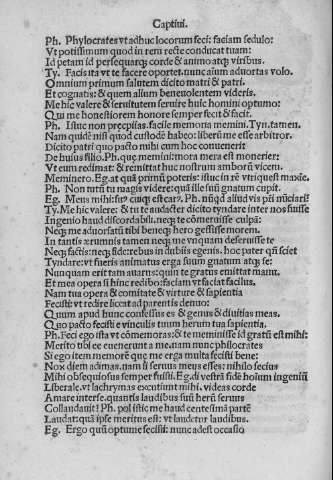 Captiui.
Ph. Phylocrates vt adhuc locorum feci: faciam sedulo:
Vt potissimum quod in rem recte conducat tuam:
Id petam id persequarq; corde & animo atq; viribus.
Ty. Facis ita vt te facere oportet. nunc animum aduortas volo.
Omnium primum salutem dicito matri & patri.
Et cognatis: & quem alium beneuolentem videris.
Me hic valere & seruitutem seruire huic homini optumo:
Qui me honestiorem honore semper fecit & facit.
Ph. Istuc non precipias. facile memoria memini. Tyn. tamen.
Nam quidē nisi quod custodē habeo: liberū me esse arbitror.
Dicito patri quo pacto mihi cum hoc conuenerit
De huius filio. Ph. que memini: mora mera est monerier:
Vt eum redimat: & remittat huc nostrum amborū vicem.
Meminero. Eg. at quā primū poteris: istuc in rē vtriquest maxīe.
Ph. Non tutū tu magis videre: quā ille suū gnatum cupit.
Eg. Meus mihi: suꝰ cuiq; est carꝰ. Ph. nūqd aliud vis pr̄i nūciari?
Ty. Me hic valere: & tu te audacter dicito tyndare inter nos fuisse
Ingenio haud discordabili. neq; te cōmeruisse culpā:
Neq; me aduorsatū tibi beneq; hero gessisse morem.
In tantis ærumnis tamen neq; me vnquam deseruisse te
Neq; factis: neq; fide: rebus in dubiis egenis. hoc pater qn̄ sciet
Tyndare: vt fueris animatus erga suum gnatum atq; se:
Nunquam erit tam auarus: quin te gratus emittat manu.
Et mea opera si hinc redibo: faciam vt faciat facilius.
Nam tua opera & comitate & virture & sapientia
Fecisti vt redire liceat ad parentis denuo:
Quum apud hunc confessus es & genus & diuitias meas.
Quo pacto fecisti e vinculis tuum herum tua sapientia.
Ph. Feci ego ista vt cōmemoras: & te meminisse id gratū est mihi:
Merito tibi ea euenerunt a me. nam nunc philocrates
Si ego item memorē que me erga multa fecisti bene:
Nox diem adimas. nam si seruus meus esses: nihilo secius
Mihi obsequiosus semper fuisti. Eg. di vestrā fidē hoīum ingeniū
Liberale. vt lachrymas excutiunt mihi. videas corde
Amare interse. quantis laudibus suū herū seruus
Collaudauit? Ph. pol istic me haud centesimā partē
Laudat: quā ipse meritus est: vt laudetur laudibus.
Eg. Ergo quū optume fecisti: nunc adest occasio